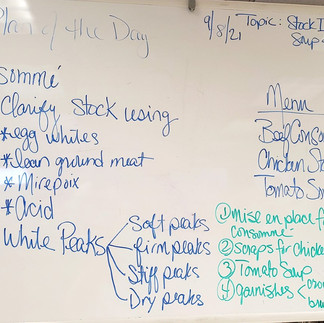 Plan of the Day
9/8/21 Topic: Stock I
Soup
sommé
Clarify Stock using
*egg whites
*lean ground meat
*Mirepoix
*Acid
White Peaks
Soft peaks
firm peaks
Stiff peaks
Dry peaks
Menu
Beef Conso
Chicken St
Tomato Sou
① Mise en place f
consommé
② scraps for chicke
③ Tomato Soup
④ garnishes <